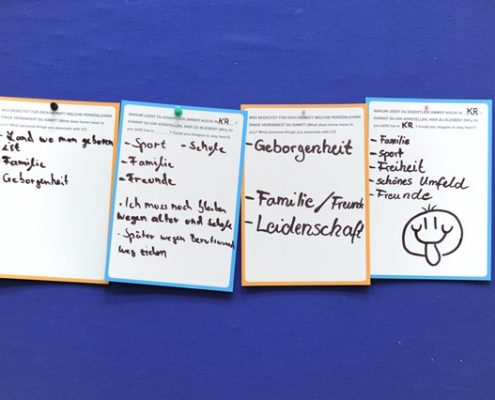 WAS BEDEUTET FÜR DICH HEIMAT? WELCHE PERSÖNLICHEN
DINGE VERBINDEST DU DAMIT? (What does home mean to
you? What personal things you associate with it?)
- Land wo man geboren
ist
- Familie
- Geborgenheit
WARUM LEBST DU EIGENTLICH (IMMER NOCH) IN KR ?
KANNST DU DIR VORSTELLEN, HIER ZU BLEIBEN? (Why do
you (still) live in ? Could you imagine to stay here?)
- Sport - Schule
- Familie
- Freunde
• Ich muss noch bleiben
wegen alter und schule
• Später wegen Berufs
weg ziehen
WAS BEDEUTET FÜR DICH HEIMAT? WELCHE PERSÖNLICHEN
DINGE VERBINDEST DU DAMIT? (What does home mean to
you? What personal things you associate with it?)
- Geborgenheit
- Familie / Freunde
- Leidenschaft
WARUM LEBST DU EIGENTLICH (IMMER NOCH) IN KR ?
KANNST DU DIR VORSTELLEN, HIER ZU BLEIBEN? (Why do
you (still) live in KR ? Could you imagine to stay here?)
- Familie
- Sport
- Freiheit
- schönes Umfeld
- Freunde